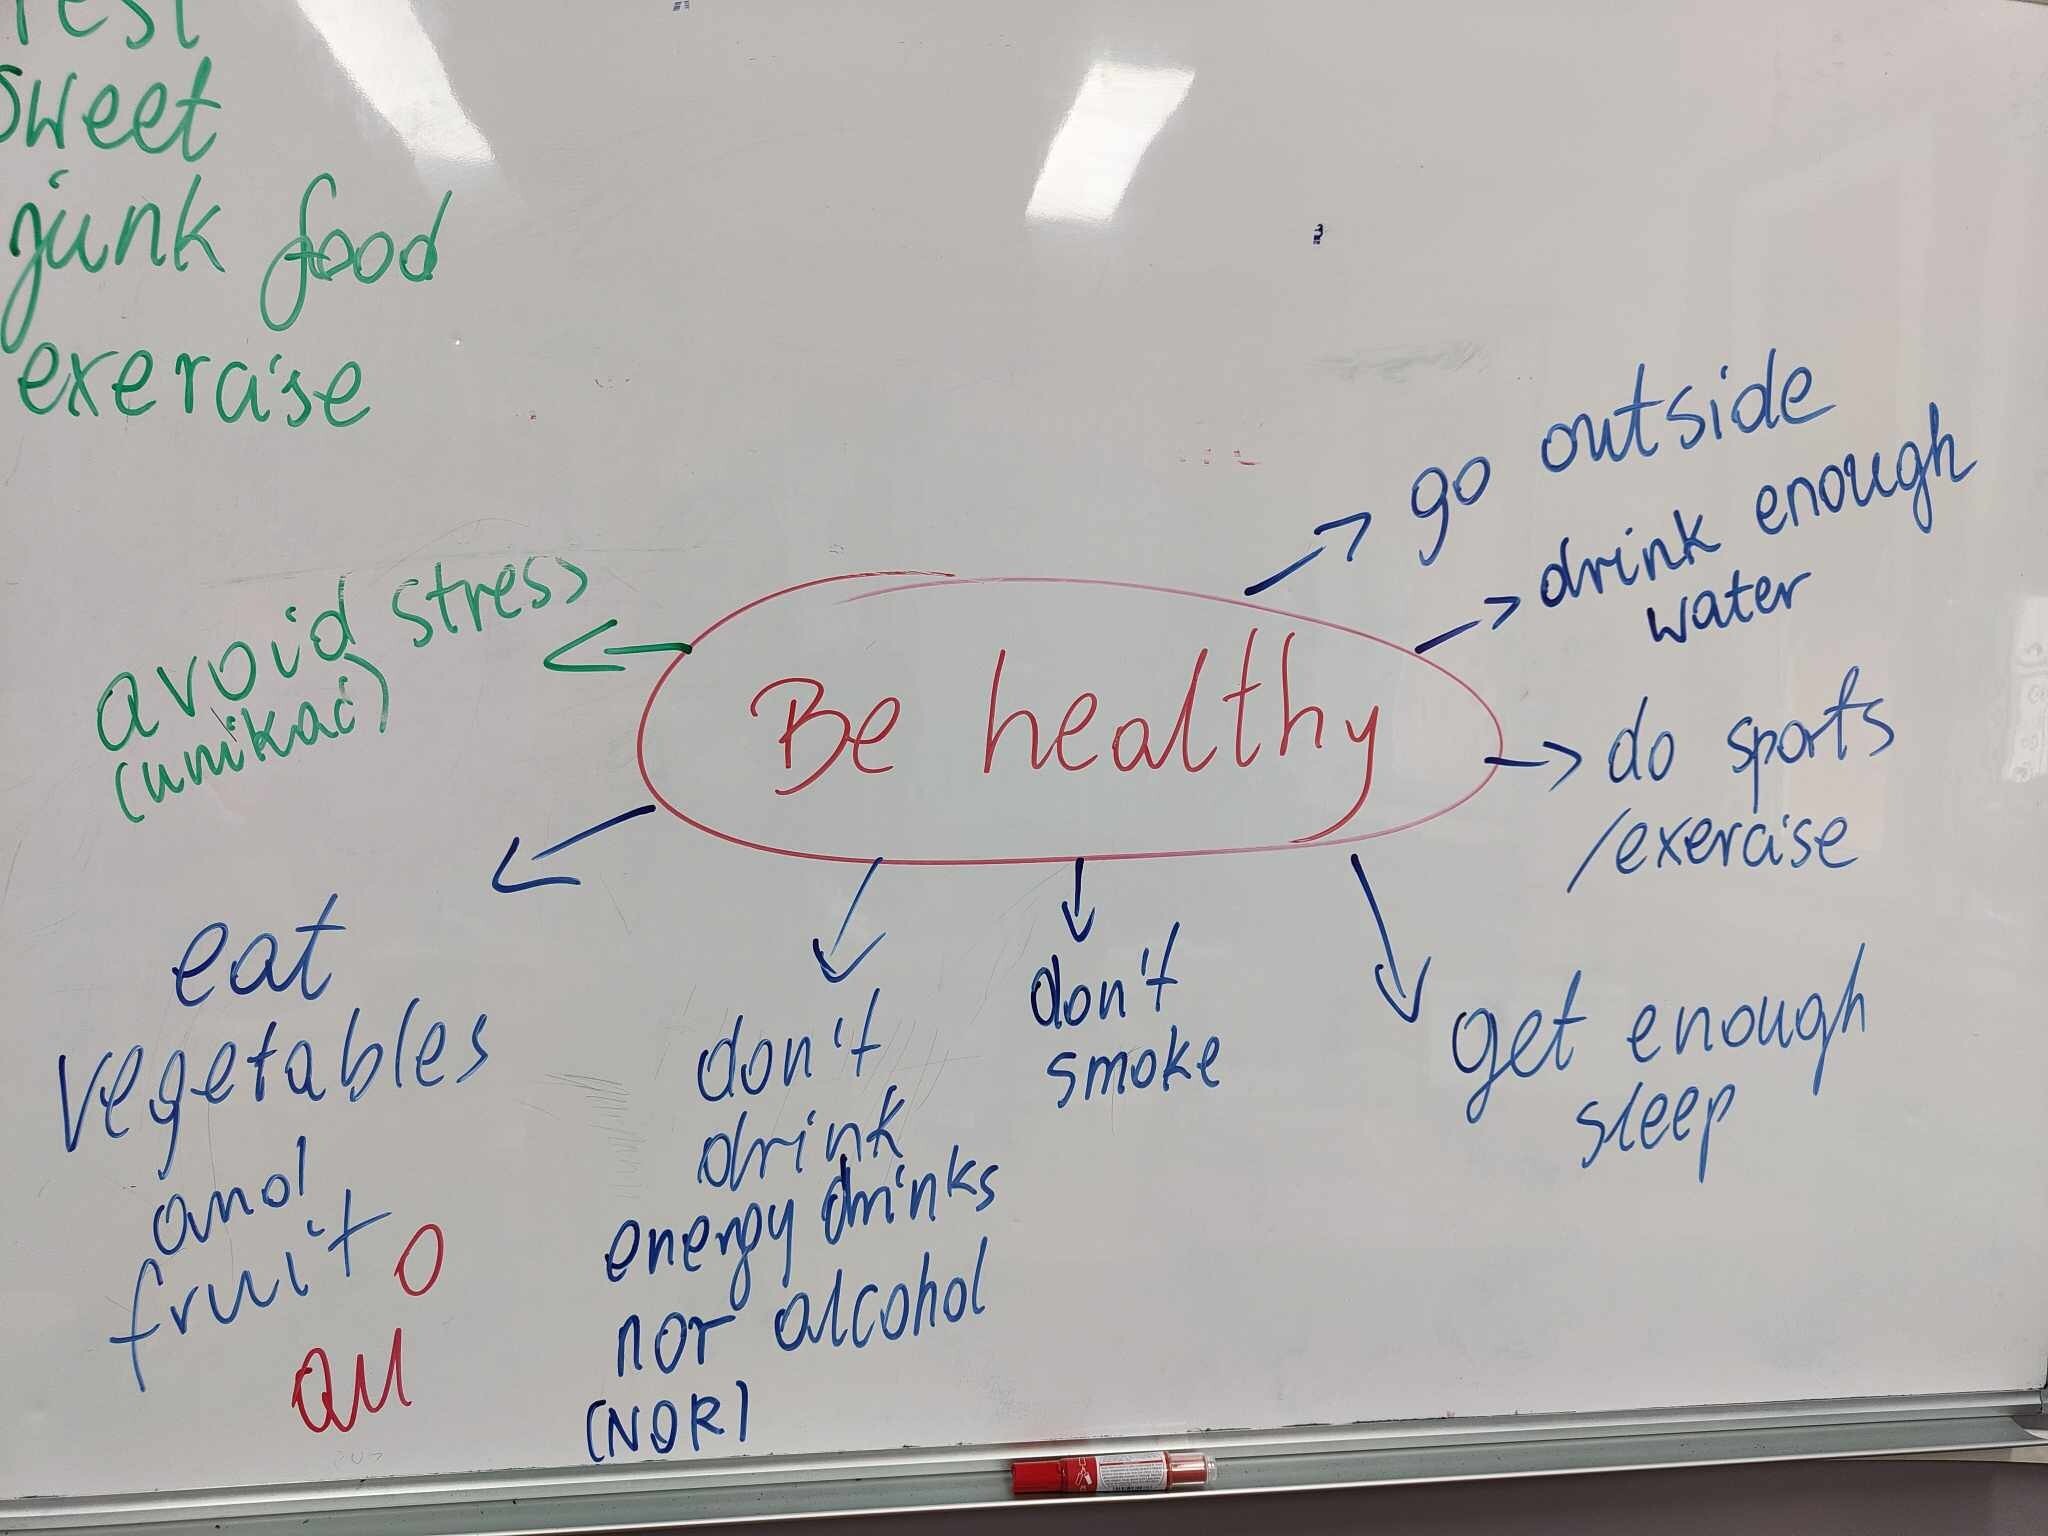 rest
sweet
junk food
exercise
avoid stress
(unikać)
Be healthy
go outside
drink enough
water
do sports
/exercise
get enough
sleep
don't
smoke
don't
drink
energy drinks
nor alcohol
(NOR)
eat
vegetables
and
fruit